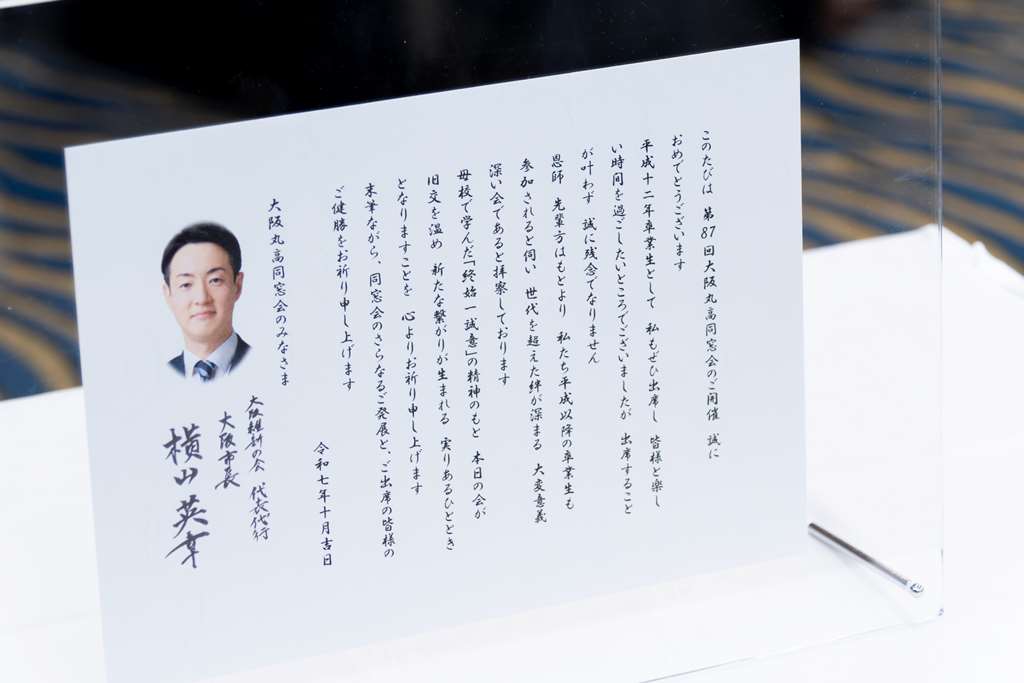 このたびは 第87回大阪丸高同窓会のご開催 誠に
おめでとうございます
平成十二年卒業生として 私もぜひ出席し 皆様と楽し
い時間を過ごしたいところでございましたが 出席すること
が叶わず 誠に残念でなりません
恩師 先輩方はもとより 私たち平成以降の卒業生も
参加されると伺い 世代を超えた絆が深まる 大変意義
深い会であると拝察しております
母校で学んだ「終始一誠意」の精神のもと 本日の会が
旧交を温め 新たな繋がりが生まれる 実りあるひととき
となりますことを 心よりお祈り申し上げます
末筆ながら、同窓会のさらなるご発展と、ご出席の皆様の
ご健勝をお祈り申し上げます
令和七年十月吉日
大阪丸高同窓会のみなさま
大阪維新の会 代表代行
大阪市長
横山英幸